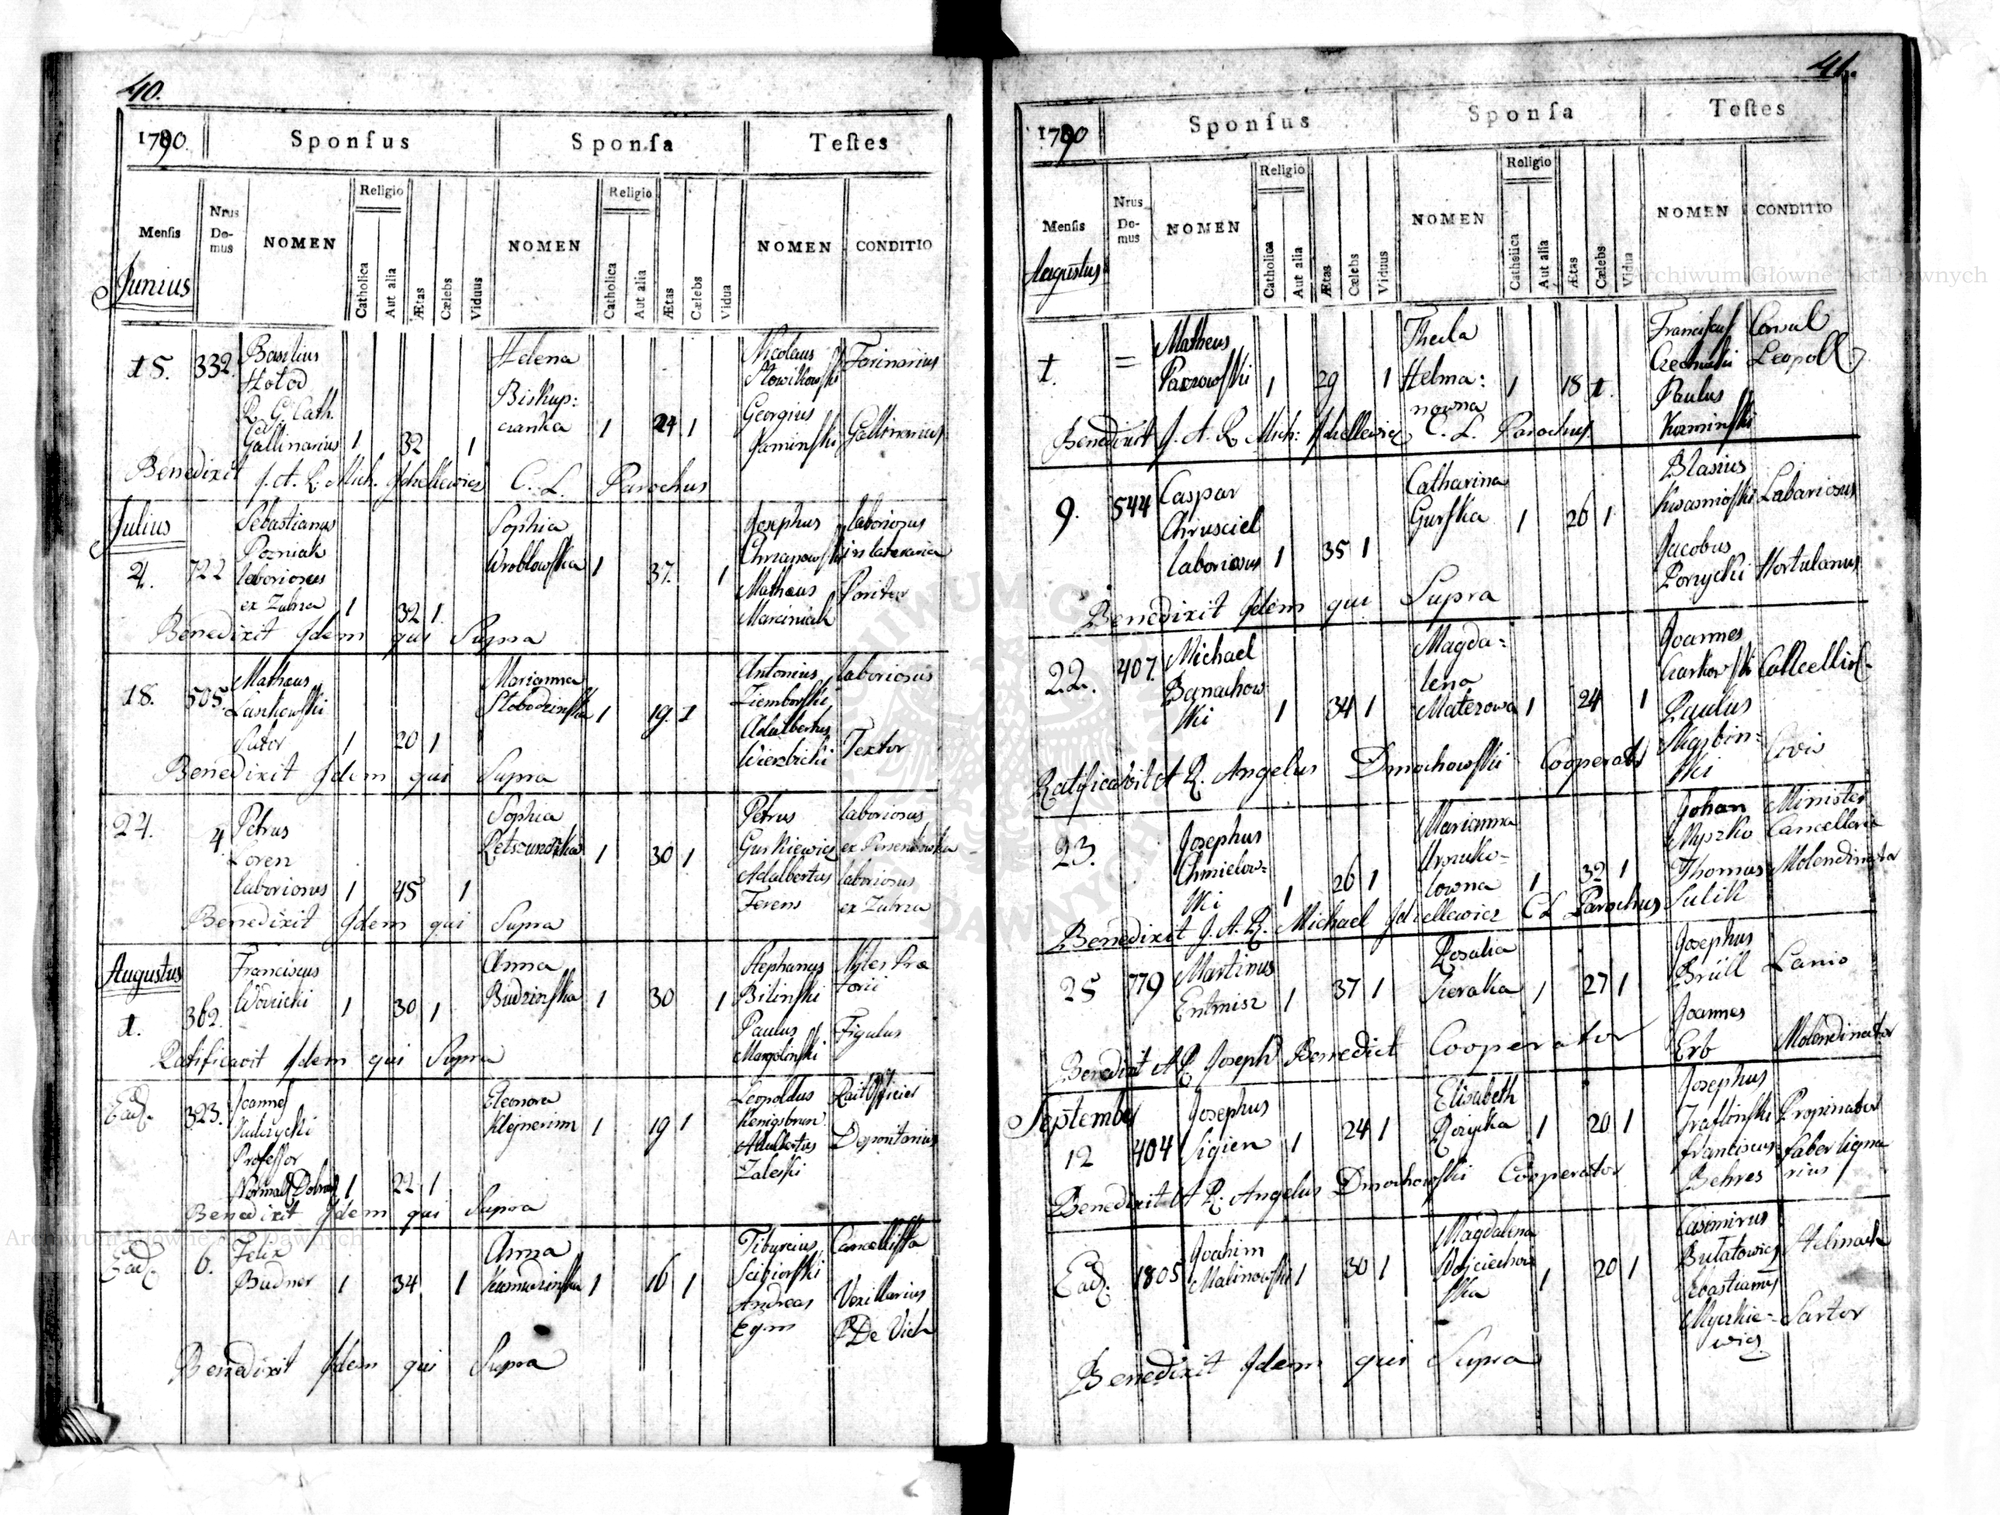 40.
1790.
Sponsus
Sponsa
Testes
Mensis
Nrus Domus
NOMEN
Religio
Catholica
Aut alia
Ætas
Cælebs
Viduus
NOMEN
Religio
Catholica
Aut alia
Ætas
Cælebs
Vidua
NOMEN
CONDITIO
Junius
15. 332. Basilius Helena Nicolaus Farinarius
Hołod Biskup: Słowikowski
R. G. Cath. cianka 1 24 1 Georgius
Gallinarius 1 32 1 Kaminski Gallinarius
Benedixit J. A. R. Mich. C. L. Parochus
Julius
2. 722 Sebastianus Sophia Josephus laboriosus
Pozniak Wroblowska 1 37. 1 Chrzanowski in lateraria
laboriosus Matheus Portitor
ex Zubrza 1 32 1. Marciniak
Benedixit Idem qui Supra
18. 505. Matheus Marianna Antonius laboriosus
Laszkowski Słobodzinska 1 19. 1 Ziembowski
Sutor 1 20 1 Adalbertus
Wierzbicki Textor
Benedixit Idem qui Supra
27. 4 Petrus Sophia Petrus laboriosus
Loren 1 30 1 Guskiewicz
laboriosus 1 45 1 Adalbertus laboriosus
Ferens ex Zubrza
Benedixit Idem qui Supra
Augustus
1. 362. Franciscus Anna Stephanus Myles Præ
Wodzicki 1 30 1 Budzinska 1 30 1 Bilinski torii
Paulus Figulus
Margolinski
Ratificavit Idem qui Supra
Ead. 323. Joannes Eleonora Leopoldus Rait Officier
Kulczycki Klejnerin 1 19 1 Kenigsbrun
Professor Adalbertus
1 22 1 Zaleski
Benedixit Idem qui Supra
Ead. 6. Felix Anna Tiburcius Cancellista
Budner 1 34 1 1 16 1 Scibiorski
Andreas Vexillarius
Egm P De Vich
Benedixit Idem qui Supra
41.
1790
Sponsus
Sponsa
Testes
Mensis
Nrus Domus
NOMEN
Religio
Catholica
Aut alia
Ætas
Cælebs
Viduus
NOMEN
Religio
Catholica
Aut alia
Ætas
Cælebs
Vidua
NOMEN
CONDITIO
Augustus
1. = Matheus Thecla Franciscus Consul
Parzowski 1 29 1 Helma: 1 18 1. Leopoll.
nowna Paulus
Kozminski
Benedixit J. A. R. Mich: C. L. Parochus
9. 544 Caspar Catharina Blasius
Chrusciel Gurska 1 26 1 Kwasnioski Laboriosus
laboriosus 1 35 1 Jacobus
Porzycki Hortulanus
Benedixit Idem qui Supra
22. 407. Michael Magda: Joannes
Banachow lena Garkowski
ski 1 34 1 Materowa 1 24 1 Paulus
Skarbin=
ski Civis
Ratificavit A. R. Angelus Dmochowski Cooperator
23. Josephus Marianna Johan Minister
Chmielow= Urszuko= Myszko Cancellaria
ski 1 26 1 lowna 1 32 1 Thomas Molendinator
Sulik
Benedixit J. A. R. Michael C L Parochus
25 779 Martinus Rosalia Josephus
Entmisz 1 37 1 Sieraka 1 27 1 Brüll Lanio
Joannes
Erb Molendinator
Benedixit A R Joseph Benedict Cooperator
September
12 404 Josephus Elisabeth Josephus
Sigien 1 24 1 Rozycka 1 20 1 Traflinski Propinator
Franciscus Faber Ligna
Behres rius
Benedixit A R. Angelus Dmochowski Cooperator
Ead. 1805 Joahim Magdalena Casimirus
Malinowski 1 30 1 Wojciechow Bułatowicz Stelmach
ska 1 20 1 Sebastianus
Myszkie= Sartor
wicz
Benedixit Idem qui Supra
Archiwum Główne Akt Dawnych
Archiwum Główne Akt Dawnych
ARCHIWUM GŁÓWNE AKT DAWNYCH